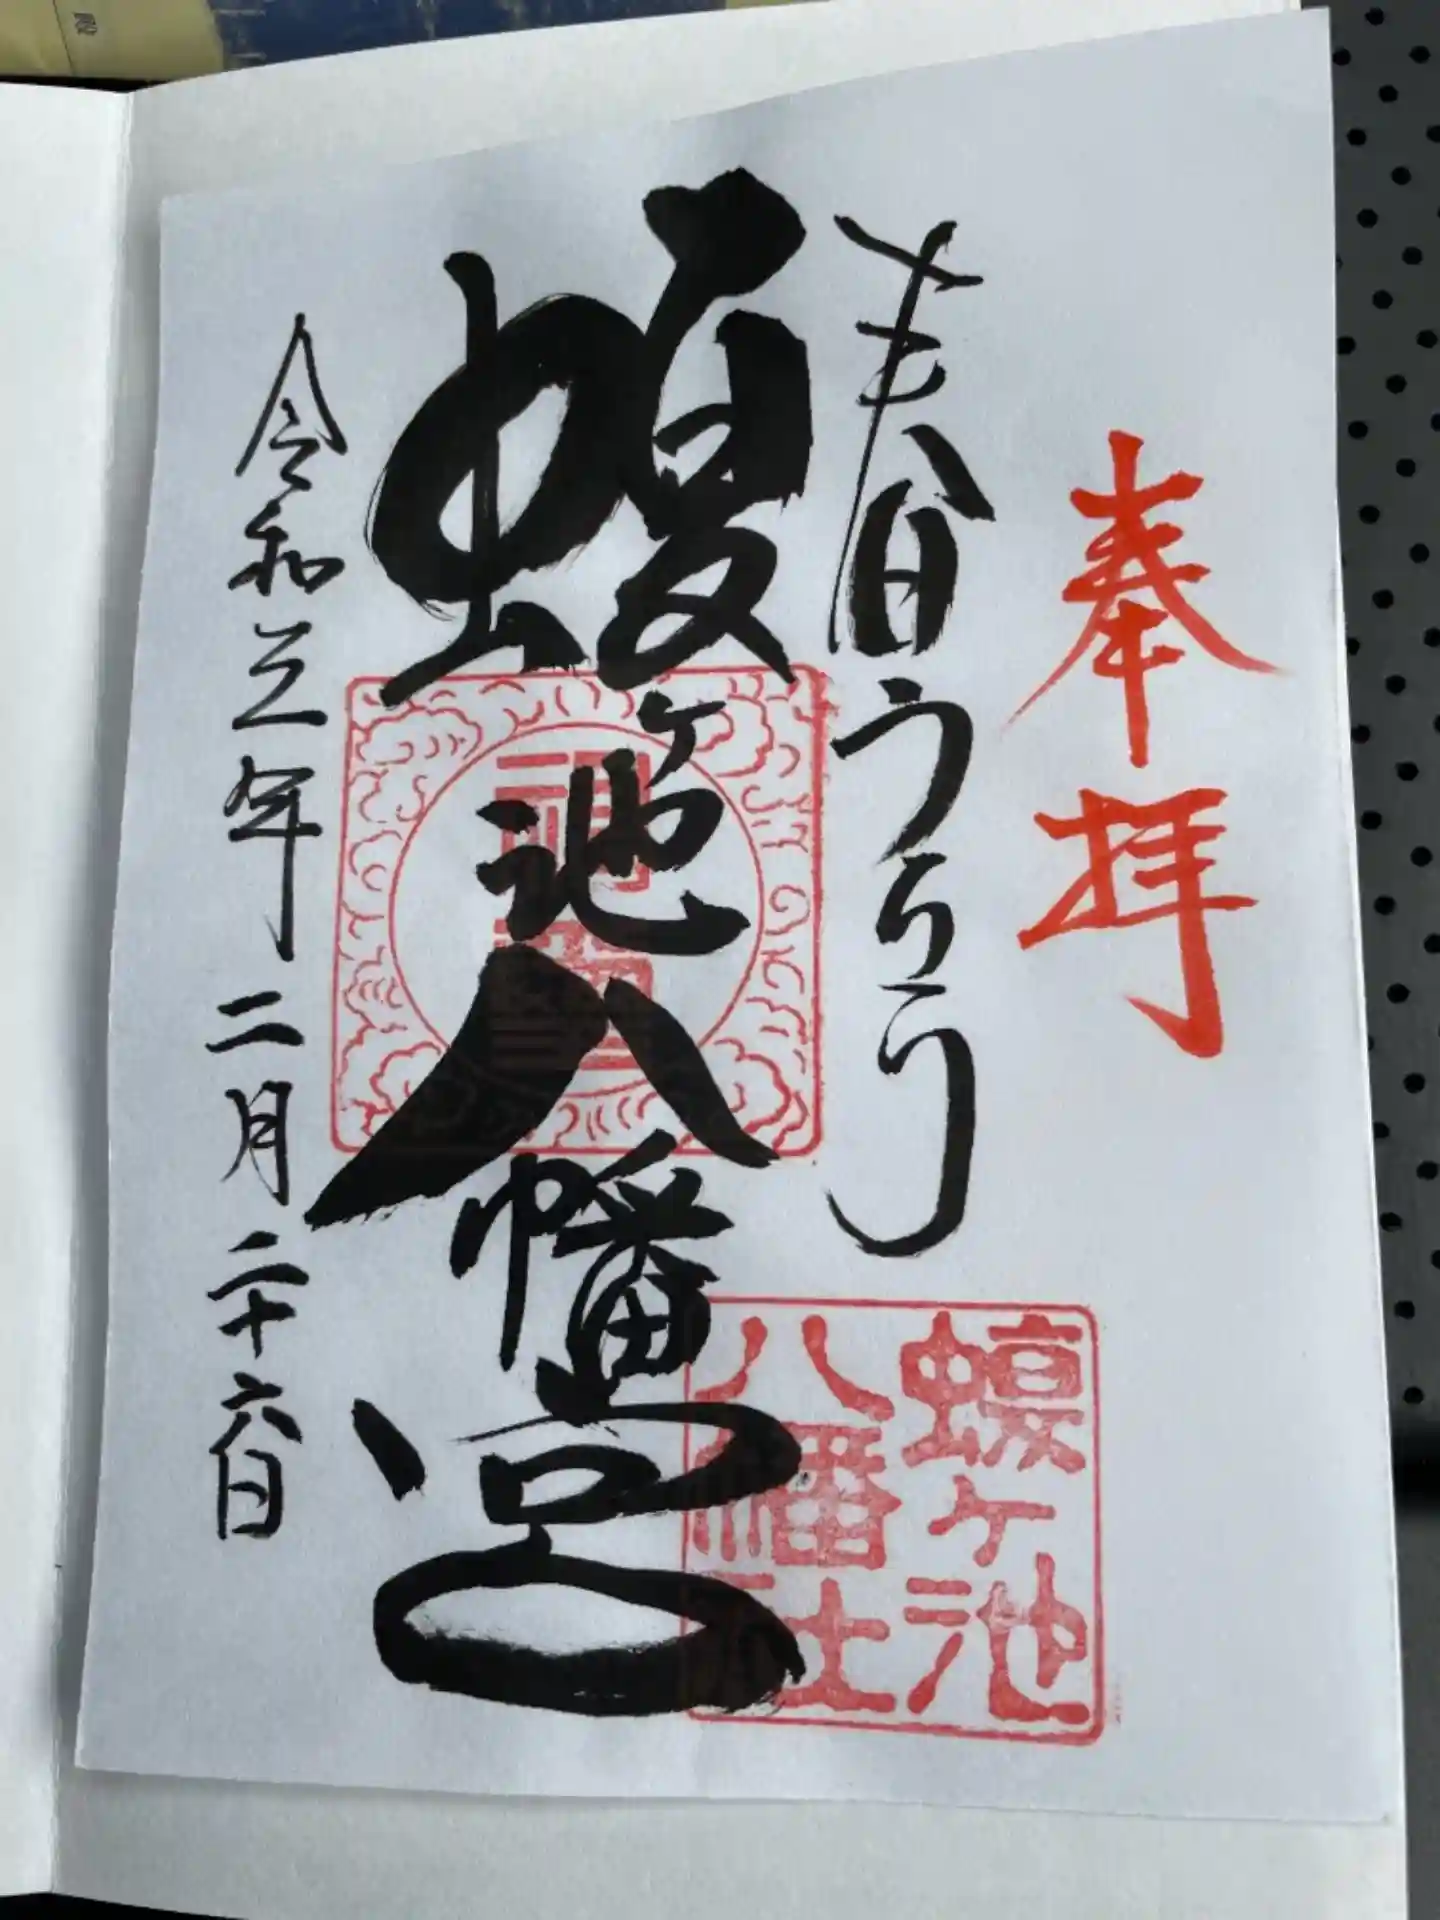 奉拝
春日うらら
蝮ヶ池八幡宮
令和三年二月二十六日
蝮ヶ池
八幡社
殿